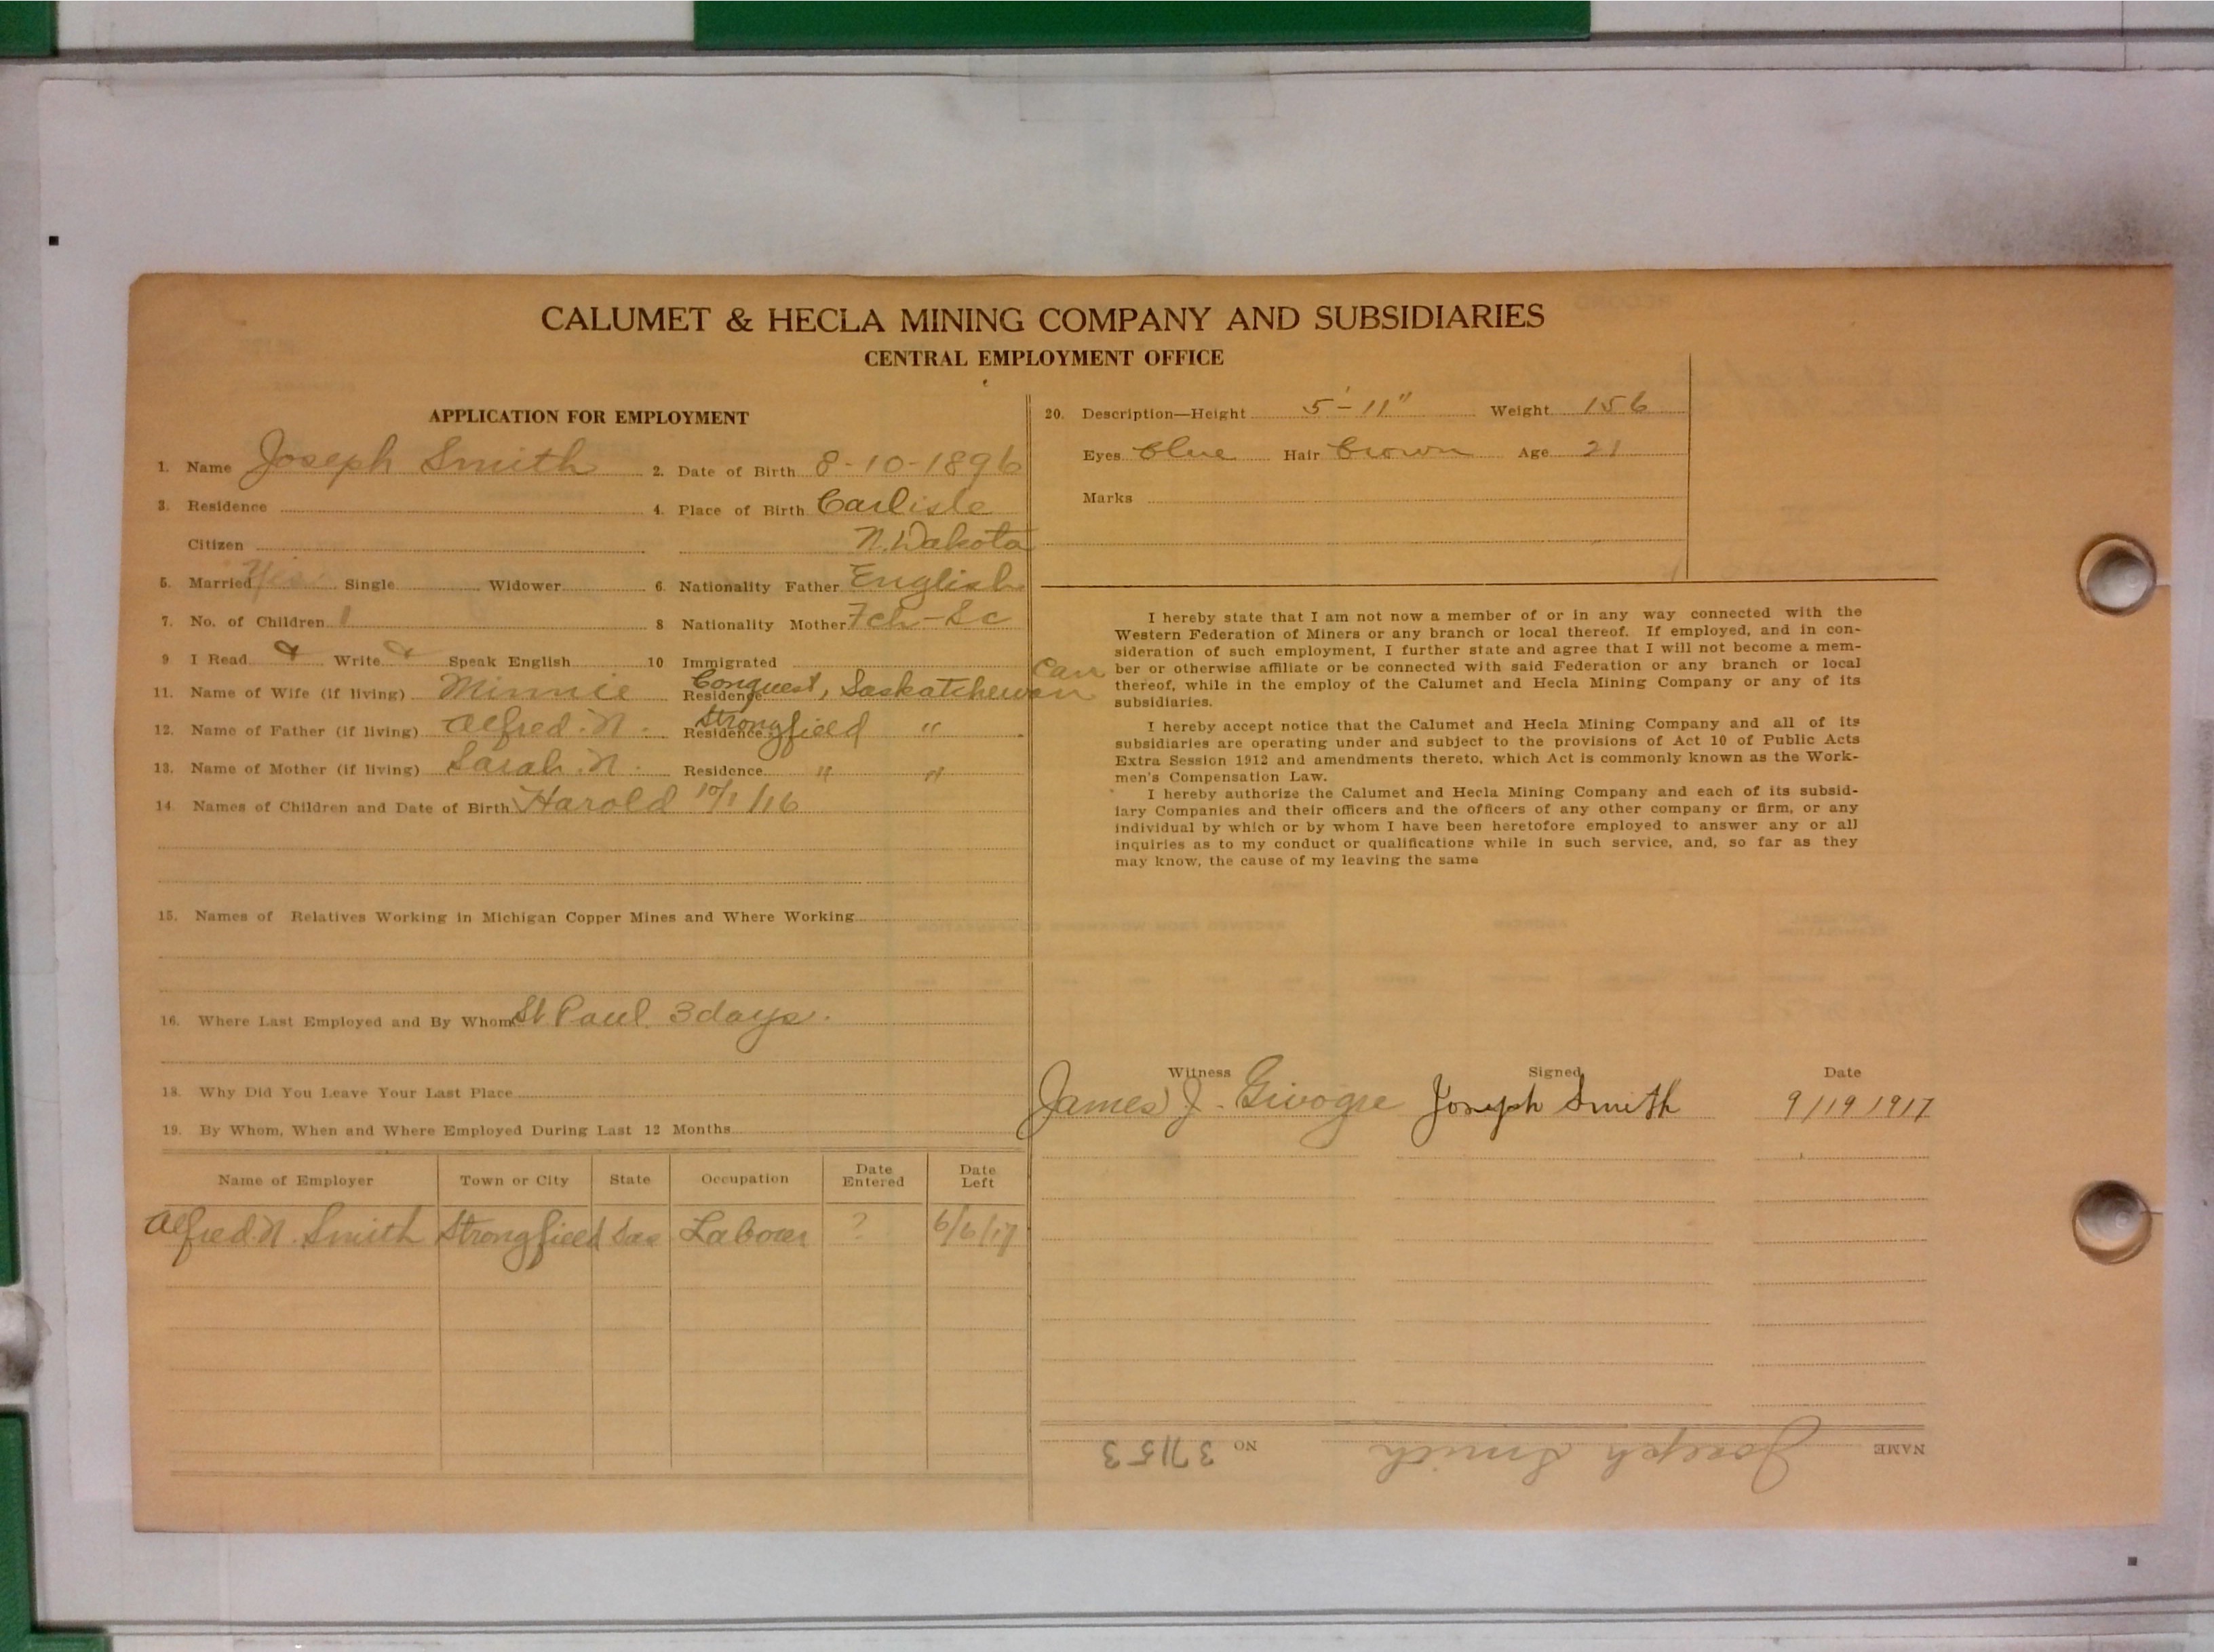 CALUMET & HECLA MINING COMPANY AND SUBSIDIARIES
CENTRAL EMPLOYMENT OFFICE
APPLICATION FOR EMPLOYMENT
1. Name Joseph Smith 2. Date of Birth 8-10-1896
3. Residence 4. Place of Birth Carlisle
Citizen N. Dakota
5. Married Yes Single Widower 6. Nationality Father English
7. No. of Children 1 8 Nationality Mother Fch-Sc
9 I Read Write Speak English 10 Immigrated
11. Name of Wife (if living) Minnie Residence Conquest, Saskatchewan Can
12. Name of Father (if living) Alfred. N. Residence Strongfield "
13. Name of Mother (if living) Sarah. N. Residence " "
14. Names of Children and Date of Birth Harold 10/1/16
15. Names of Relatives Working in Michigan Copper Mines and Where Working
16. Where Last Employed and By Whom St Paul 3 days.
18. Why Did You Leave Your Last Place
19. By Whom, When and Where Employed During Last 12 Months
Name of Employer Town or City State Occupation Date Entered Date Left
Alfred. N. Smith Strongfield Sas Laborer ? 6/6/17
20. Description—Height 5'-11" Weight 156
Eyes Blue Hair Brown Age 21
Marks
I hereby state that I am not now a member of or in any way connected with the
Western Federation of Miners or any branch or local thereof. If employed, and in con-
sideration of such employment, I further state and agree that I will not become a mem-
ber or otherwise affiliate or be connected with said Federation or any branch or local
thereof, while in the employ of the Calumet and Hecla Mining Company or any of its
subsidiaries.
I hereby accept notice that the Calumet and Hecla Mining Company and all of its
subsidiaries are operating under and subject to the provisions of Act 10 of Public Acts
Extra Session 1912 and amendments thereto, which Act is commonly known as the Work-
men's Compensation Law.
I hereby authorize the Calumet and Hecla Mining Company and each of its subsid-
iary Companies and their officers and the officers of any other company or firm, or any
individual by which or by whom I have been heretofore employed to answer any or all
inquiries as to my conduct or qualifications while in such service, and, so far as they
may know, the cause of my leaving the same
Witness Signed Date
James J. Joseph Smith 9/19 1917
NAME Joseph Smith NO 37153